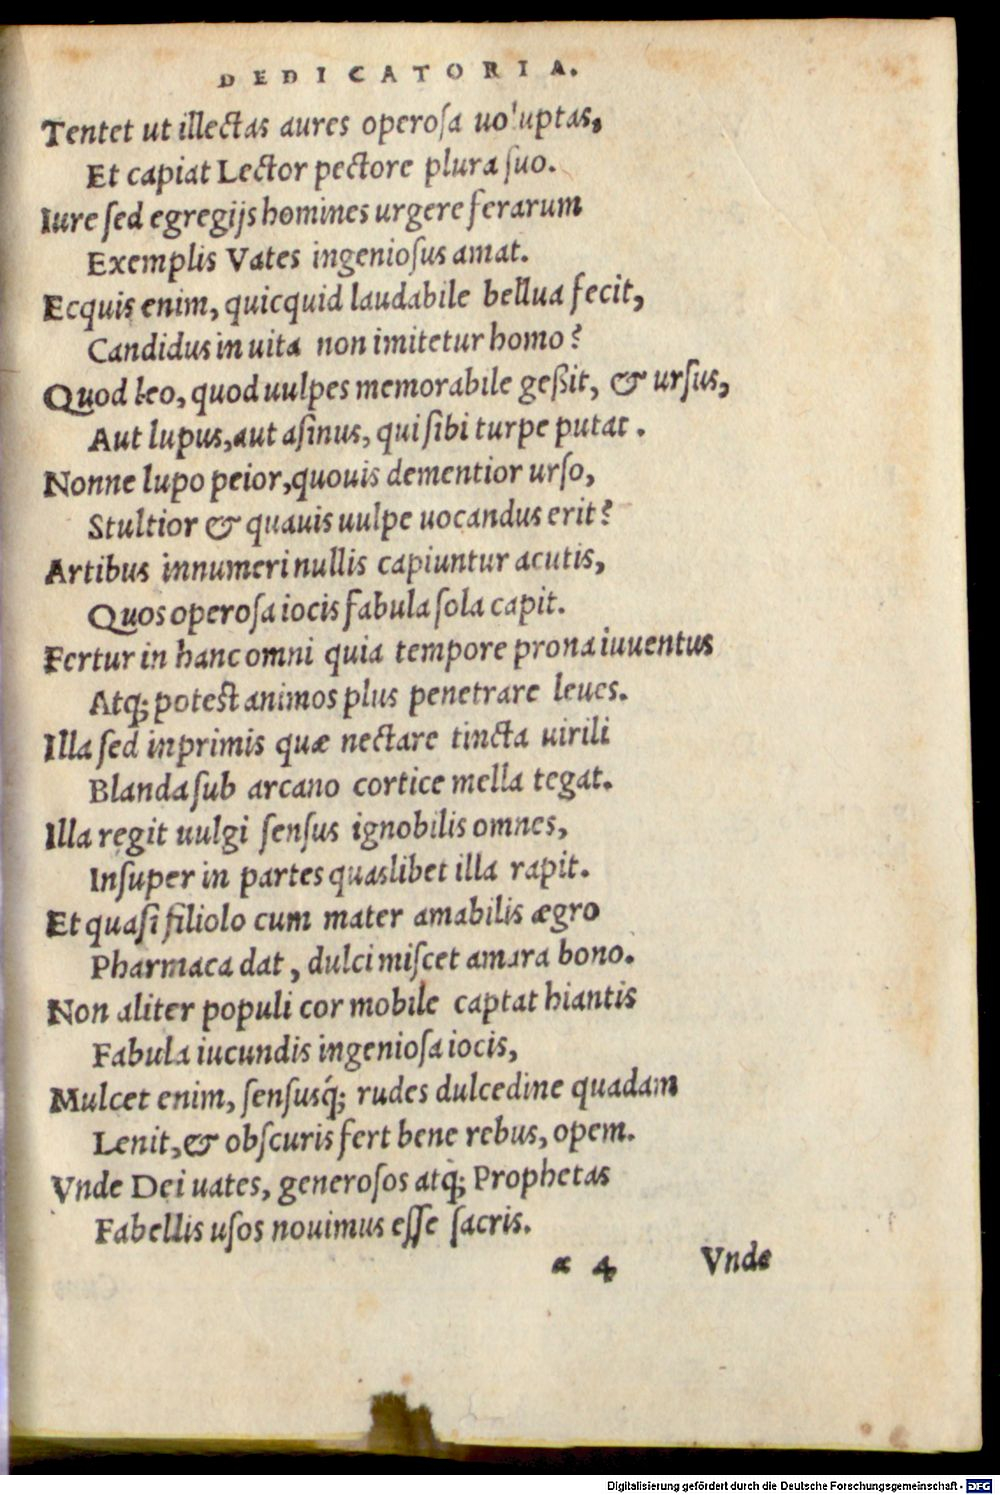 DEDICATORIA.
Tentet ut illectas aures operosa uoluptas,
Et capiat Lector pectore plura suo.
Iure sed egregijs homines urgere ferarum
Exemplis Vates ingeniosus amat.
Ecquis enim, quicquid laudabile bellua fecit,
Candidus in uita non imitetur homo?
Quod leo, quod uulpes memorabile geßit, & ursus,
Aut lupus, aut asinus, qui sibi turpe putat.
Nonne lupo peior, quouis dementior urso,
Stultior & quauis uulpe uocandus erit?
Artibus innumeri nullis capiuntur acutis,
Quos operosa iocis fabula sola capit.
Fertur in hanc omni quia tempore prona iuuentus
Atq; potest animos plus penetrare leues.
Illa sed inprimis quæ nectare tincta uirili
Blanda sub arcano cortice mella tegat.
Illa regit uulgi sensus ignobilis omnes,
Insuper in partes quaslibet illa rapit.
Et quasi filiolo cum mater amabilis ægro
Pharmaca dat, dulci miscet amara bono.
Non aliter populi cor mobile captat hiantis
Fabula iucundis ingeniosa iocis,
Mulcet enim, sensusq́; rudes dulcedine quadam
Lenit, & obscuris fert bene rebus, opem.
Vnde Dei uates, generosos atq; Prophetas
Fabellis usos nouimus esse sacris.
a 4 Vnde
Digitalisierung gefördert durch die Deutsche Forschungsgemeinschaft - DFG